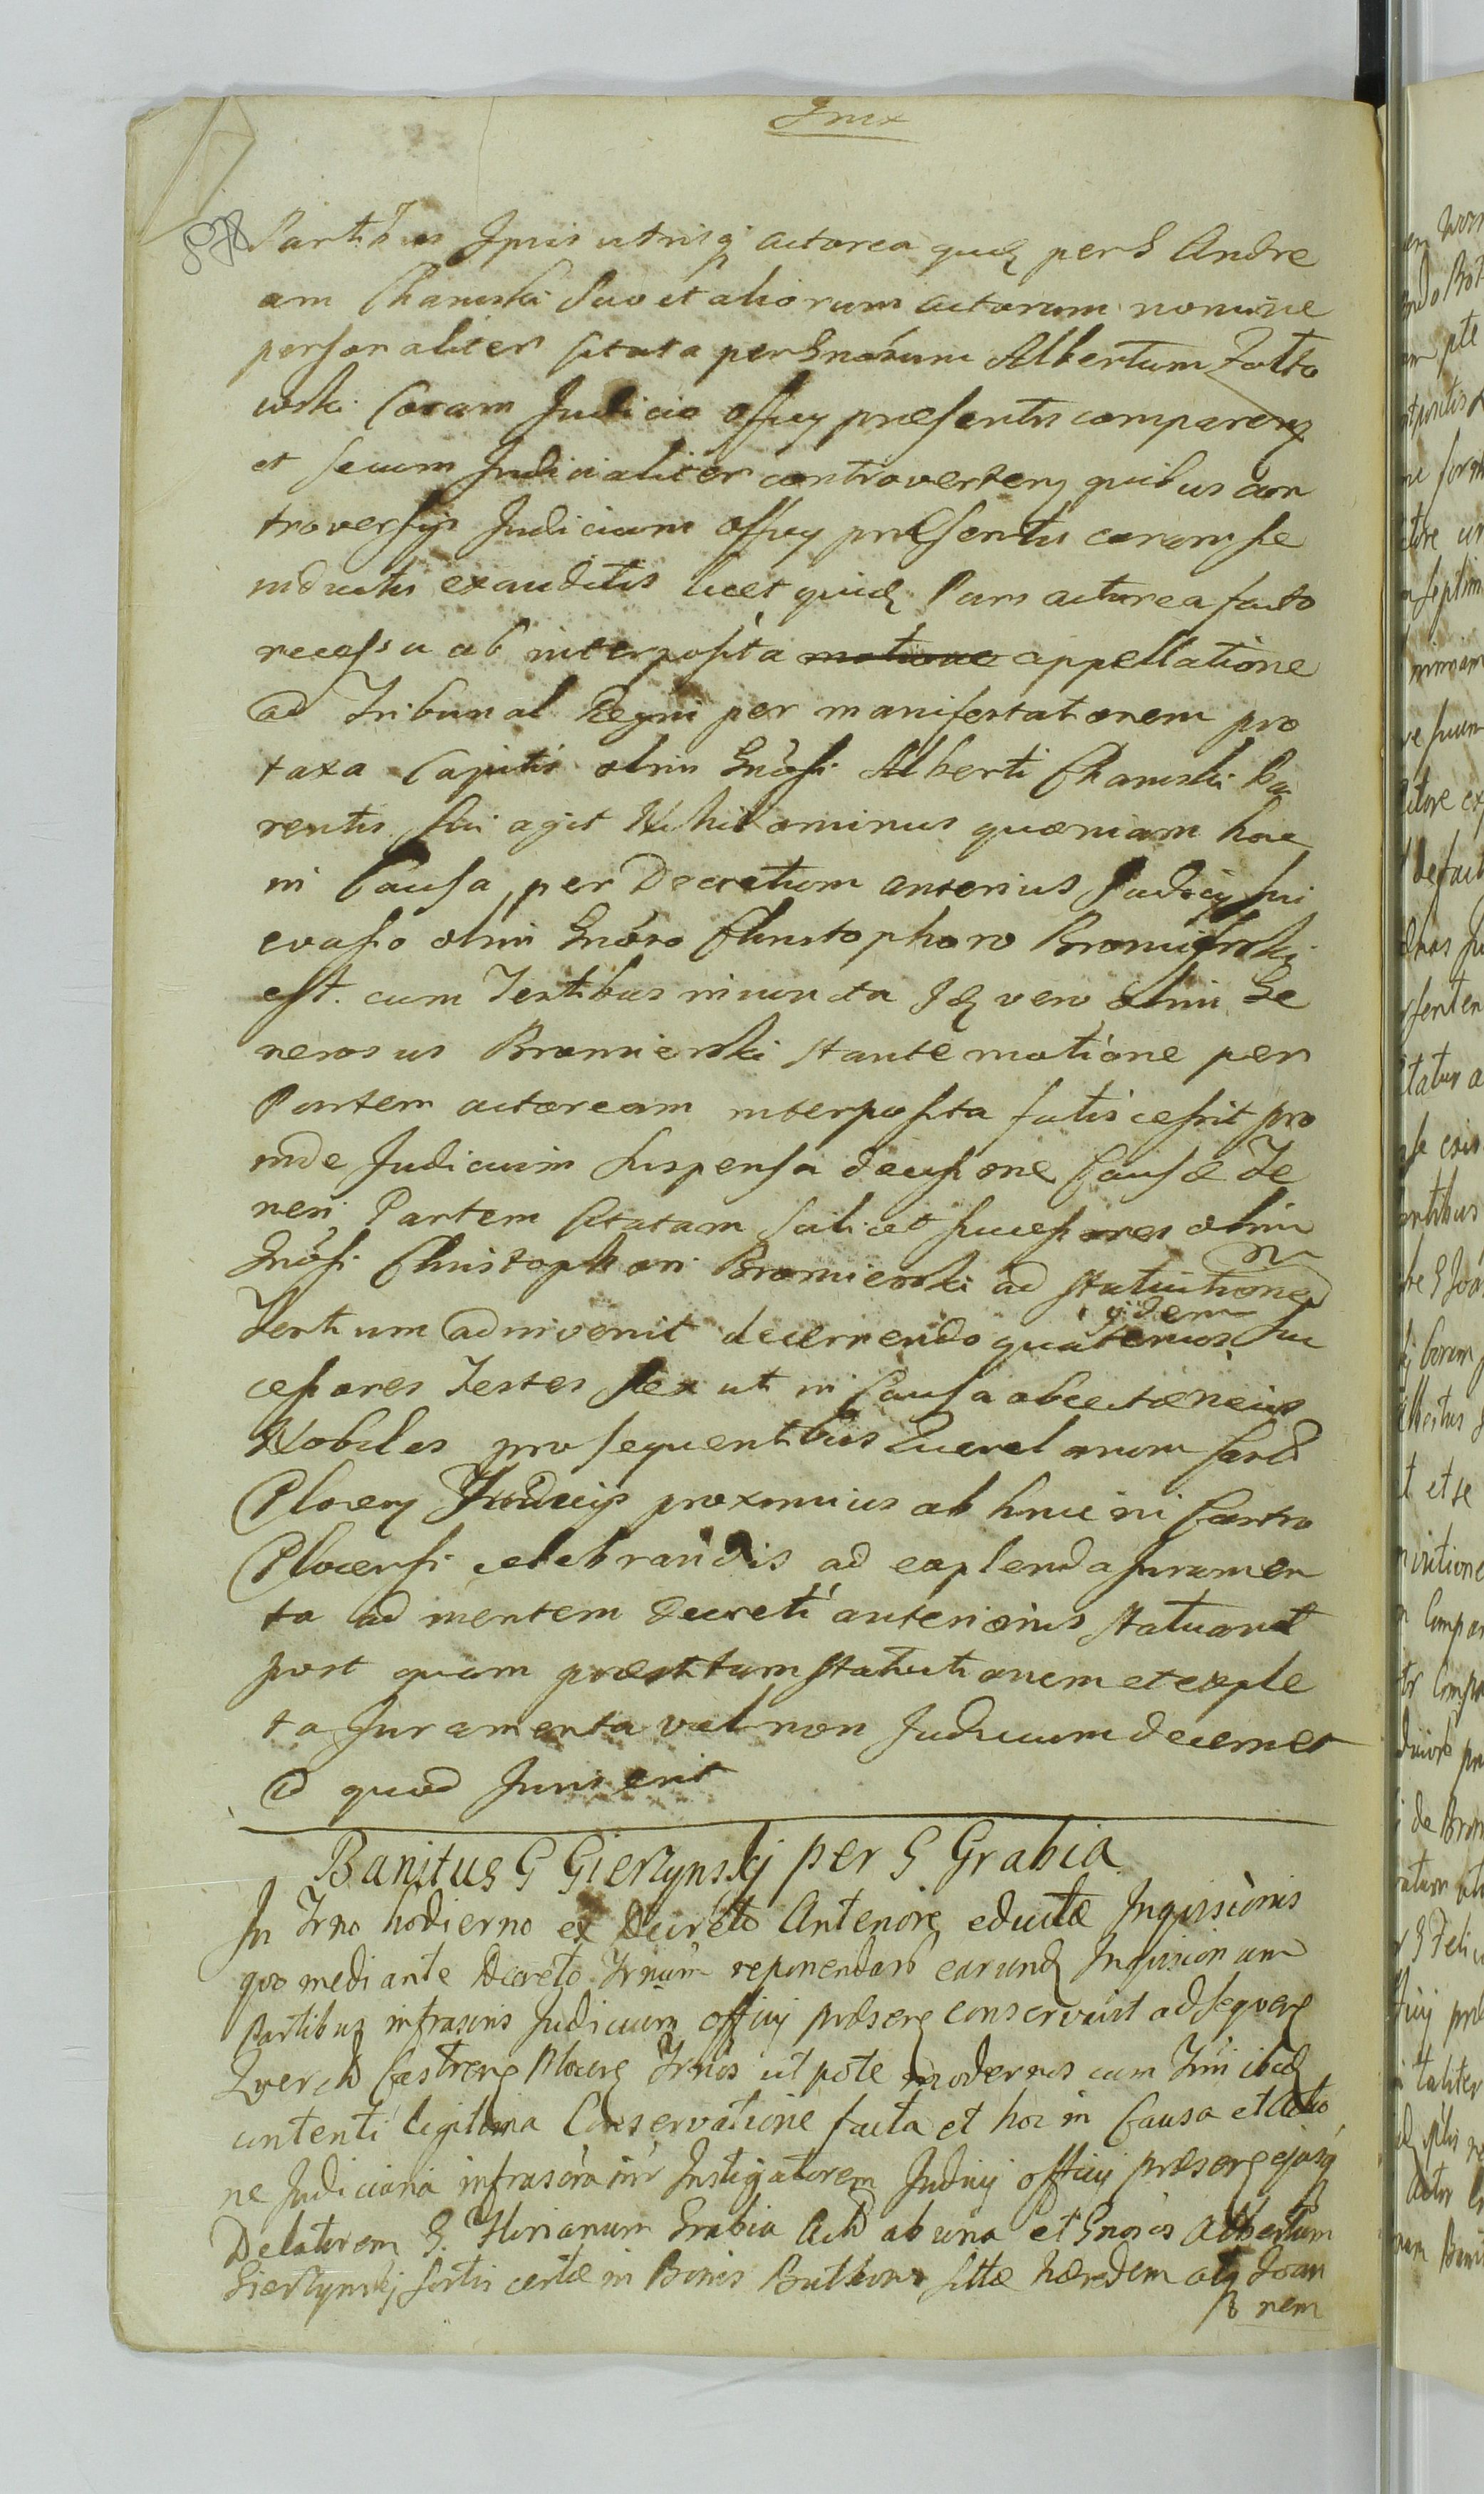 Partibus Ipsis utrisq actorea quid per G Andre
am Chamski suo et aliorum actorum nomine
personaliter citata per Gnosum Albertum Zolto
wski Coram Judicio officy præsentis comparen
et secum Judicialiter controverten quibus con
troversys Judicium officy præsentis coram se
inductis exauditis licet quid Pars actorea facto
recessu ab interposita motione appellatione
ad Tribunal Regni per manifestationem pro
taxa Capitis olim Gnosi Alberti Chamski Pa
rentis sui agit Nihilominus quoniam hac
in Causa per Decretum anterius Judicy sui
evasio olim Gnoso Christophoro Bromirski
est cum Testibus iniuncta Id vero olim Ge
nerosus Bromierski stante motione per
Partem actoream interposita fatis cessit pro
inde Judicium suspensa decisione Causæ Te
neri Partem Citatam scilicet successores olim
Gnosi Christophori Bromierski ad statuitionem
Testium adinvenit decernendo quatenus iidem suc
cessores Testes sex ut in Causa
Nobiles pro sequentibus Querelarum
Plocen Judicys proximius ab hinc in Castro
Plocensi celebrandis ad explenda Juramen
ta ad mentem Decreti anterioris statuant
post quam præstitam statuitionem et exple
ta Juramenta vel non Judicium decernet
id quod Juris erit
Banitus G Gierzynskj per G Grabia
In Trno hodierno ex Decreto Anteriore eductæ Inqisicionis
quo mediante Decreto Trnum reponendar earund Inqisicionum
Partibus infrascris Judicium officy præsen conservavit ad sequen
Querel Castren Plocen Trnos ut pote modernos cum Trni ibid
contenti legitima Conservatione facta et hoc in Causa et Actio
ne Judiciaria infrascra inr Instigatorem Judicy officy præsen ejusq
Delatorem G. Florianum Grabia ab una et Gnosos Albertum
Gierzynskj sortis certæ in Bonis sittæ hæredem atq Joan
nem